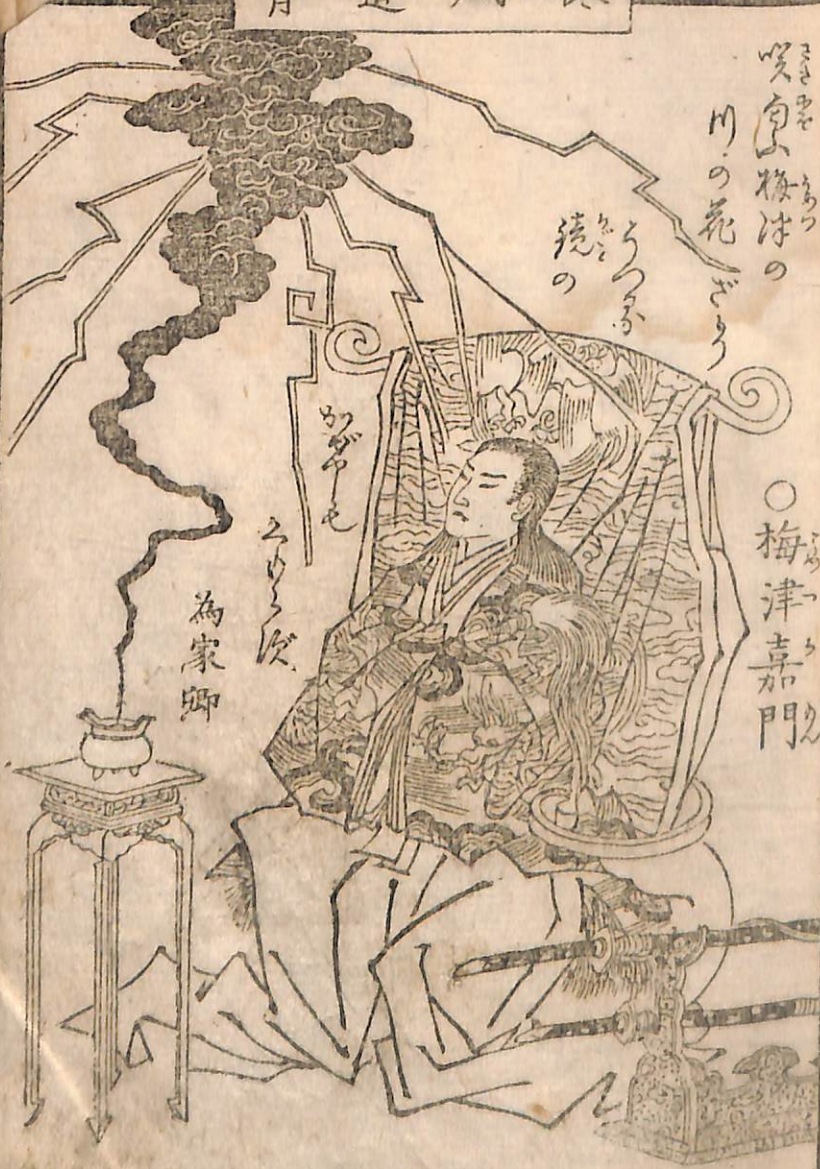 咲匂ふ梅津の
川の花ざかり
うつる
鏡の
かげも
くもらず
為家卿
○梅津嘉門